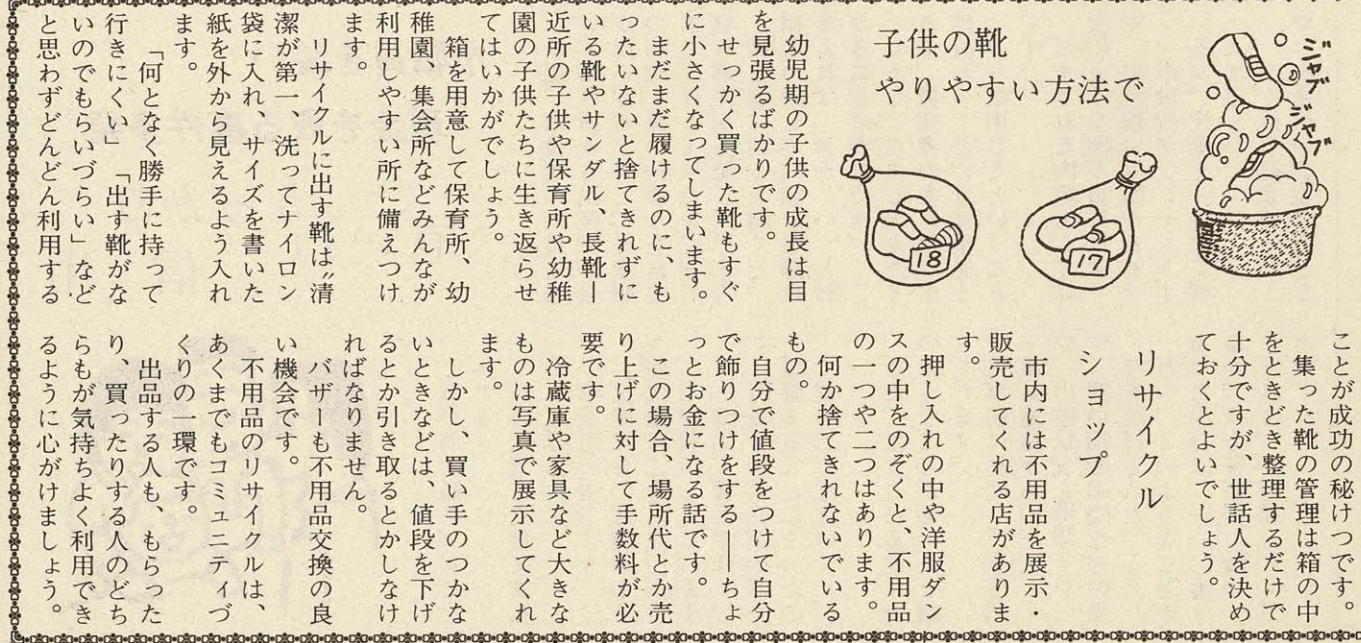 ジャブ
ジャブ
18
17
子供の靴
やりやすい方法で
幼児期の子供の成長は目
を見張るばかりです。
せっかく買った靴もすぐ
に小さくなってしまいます。
まだまだ履けるのに、も
ったいないと捨てきれずに
いる靴やサンダル、長靴―
近所の子供や保育所や幼稚
園の子供たちに生き返らせ
てはいかがでしょう。
箱を用意して保育所、幼
稚園、集会所などみんなが
利用しやすい所に備えつけ
ます。
リサイクルに出す靴は〝清
潔が第一、洗ってナイロン
袋に入れ、サイズを書いた
紙を外から見えるよう入れ
ます。
「何となく勝手に持って
行きにくい」「出す靴がな
いのでもらいづらい」など
と思わずどんどん利用する
ことが成功の秘けつです。
集った靴の管理は箱の中
をときどき整理するだけで
十分ですが、世話人を決め
ておくとよいでしょう。
リサイクル
ショップ
市内には不用品を展示・
販売してくれる店がありま
す。
押し入れの中や洋服ダン
スの中をのぞくと、不用品
の一つや二つはあります。
何か捨てきれないでいる
もの。
自分で値段をつけて自分
で飾りつけをする――ちょ
っとお金になる話です。
この場合、場所代とか売
り上げに対して手数料が必
要です。
冷蔵庫や家具など大きな
ものは写真で展示してくれ
ます。
しかし、買い手のつかな
いときなどは、値段を下げ
るとか引き取るとかしなけ
ればなりません。
バザーも不用品交換の良
い機会です。
不用品のリサイクルは、
あくまでもコミュニティづ
くりの一環です。
出品する人も、もらった
り、買ったりする人のどち
らもが気持ちよく利用でき
るように心がけましょう。